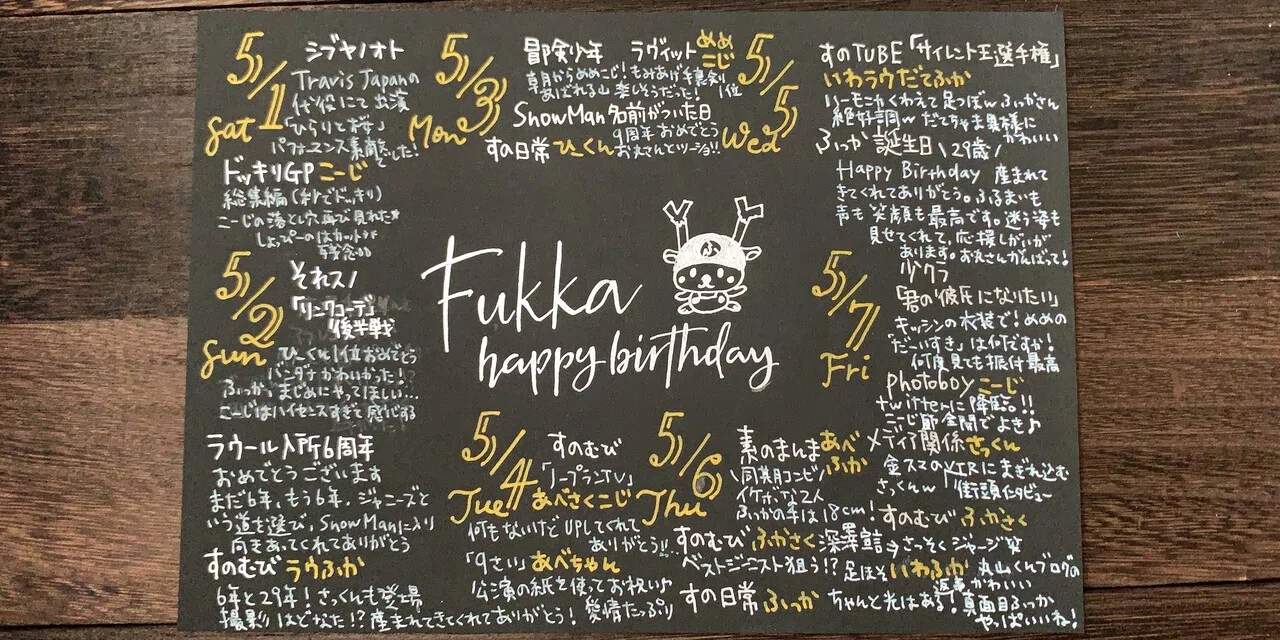 5/1
Sat
シブヤノオト
Travis Japanの
代役にて出演
「ひらりと桜」
パフォーマンス素敵
でした!
ドッキリGP こーじ
総集編(秒でドッキリ)
こーじの落とし穴再び見れた
しょっぴーのはカット
残念
5/2
Sun
それスノ
「リンクコーデ」
後半戦
ひーくん1位おめでとう
バンダナかわいかった!
ふっか、まじめにやってほしい…
こーじはハイセンスすぎて感心する
ラウール入所6周年
おめでとうございます
まだ6年、もう6年、ジャニーズと
いう道を選び、SnowManに入り
向きあってくれてありがとう
すのむび ラウふか
6年と29年! さっくんも登場
撮影はどなた!?産まれてきてくれてありがとう!
5/3
Mon
冒険少年 ラヴィット めめ
こじ
朝からめめこじ!もみあげ手裏剣
あばれる山 楽しそうだった! 1位
SnowMan 名前がついた日
9周年おめでとう
すの日常 ひーくん お丸さんとツーショ!!
Fukka
ふ
happy birthday
5/4
Tue
すのむび
「ノープランTV」
あべさくこじ
何もないけどUPしてくれて
ありがとう!!
「9さい」あべちゃん
公演の紙を使ってお祝い♪
愛情たっぷり
5/5
Wed
すのTUBE「サイレント王選手権」
いわラウだてふか
ハーモニカくわえて足つぼwふっかさん
絶好調w だてちゃま奥様に
かわいい
ふっか 誕生日\29歳/
Happy Birthday 産まれて
きてくれてありがとう。ふるまいも
声も笑顔も最高です。迷う姿も
見せてくれて、応援しがいが
あります。お丸さんがんばって!
5/6
Thu
素のまんま あべ
ふか
\同期コンビ/
イケボな2人
ふっかの手は18cm!
すのむび ふかさく 深澤宣言
ベストジーニスト狙う!? 足ほそ
すの日常 ふっか ちゃんと光はある!真面目ふっか
やっぱいいね!
5/7
Fri
少クラ
「君の彼氏になりたい」
キッシンの衣装で!めめの
「だーいすき」は何ですか!
何度見ても振付最高
photoboy こーじ
twitterに降臨。!!
こじ節全開でよき♪
メディア関係 さっくん
金スマのVTRにまぎれ込む
さっくんw「街頭インタビュー」
すのむび ふかさく
→さっそくジャージ笑
いわふか 丸山くんブログの
返事かわいい